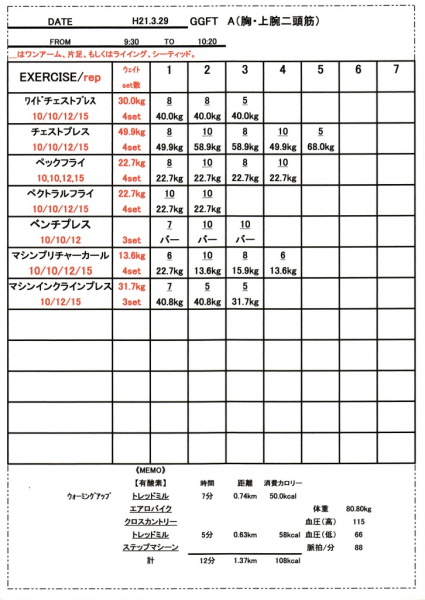 DATE H21.3.29 GGFT A(胸・上腕二頭筋)
FROM 9:30 TO 10:20
__はワンアーム、片足、もしくはライイング、シーティッド。
EXERCISE/rep ウェイト set数 1 2 3 4 5 6 7
ワイドチェストプレス 30.0kg 8 8 5
10/10/12/15 4set 40.0kg 40.0kg 40.0kg
チェストプレス 49.9kg 8 10 8 10 5
10/10/12/15 4set 49.9kg 58.9kg 58.9kg 49.9kg 68.0kg
ペックフライ 22.7kg 8 10 8 10
10,10,12,15 4set 22.7kg 22.7kg 22.7kg 22.7kg
ペクトラルフライ 22.7kg 10 10
10/10/12/15 4set 22.7kg 22.7kg
ベンチプレス 7 10 10
10/10/12 3set バー バー バー
マシンプリチャーカール 13.6kg 6 10 8 6
10/10/12/15 4set 22.7kg 13.6kg 15.9kg 13.6kg
マシンインクラインプレス 31.7kg 7 5 5
10/12/15 3set 40.8kg 40.8kg 31.7kg
《MEMO》
【有酸素】 時間 距離 消費カロリー
ウォーミングアップ トレッドミル 7分 0.74km 50.0kcal
エアロバイク 体重 80.80kg
クロスカントリー 血圧(高) 115
トレッドミル 5分 0.63km 58kcal 血圧(低) 66
ステップマシーン 脈拍/分 88
計 12分 1.37km 108kcal